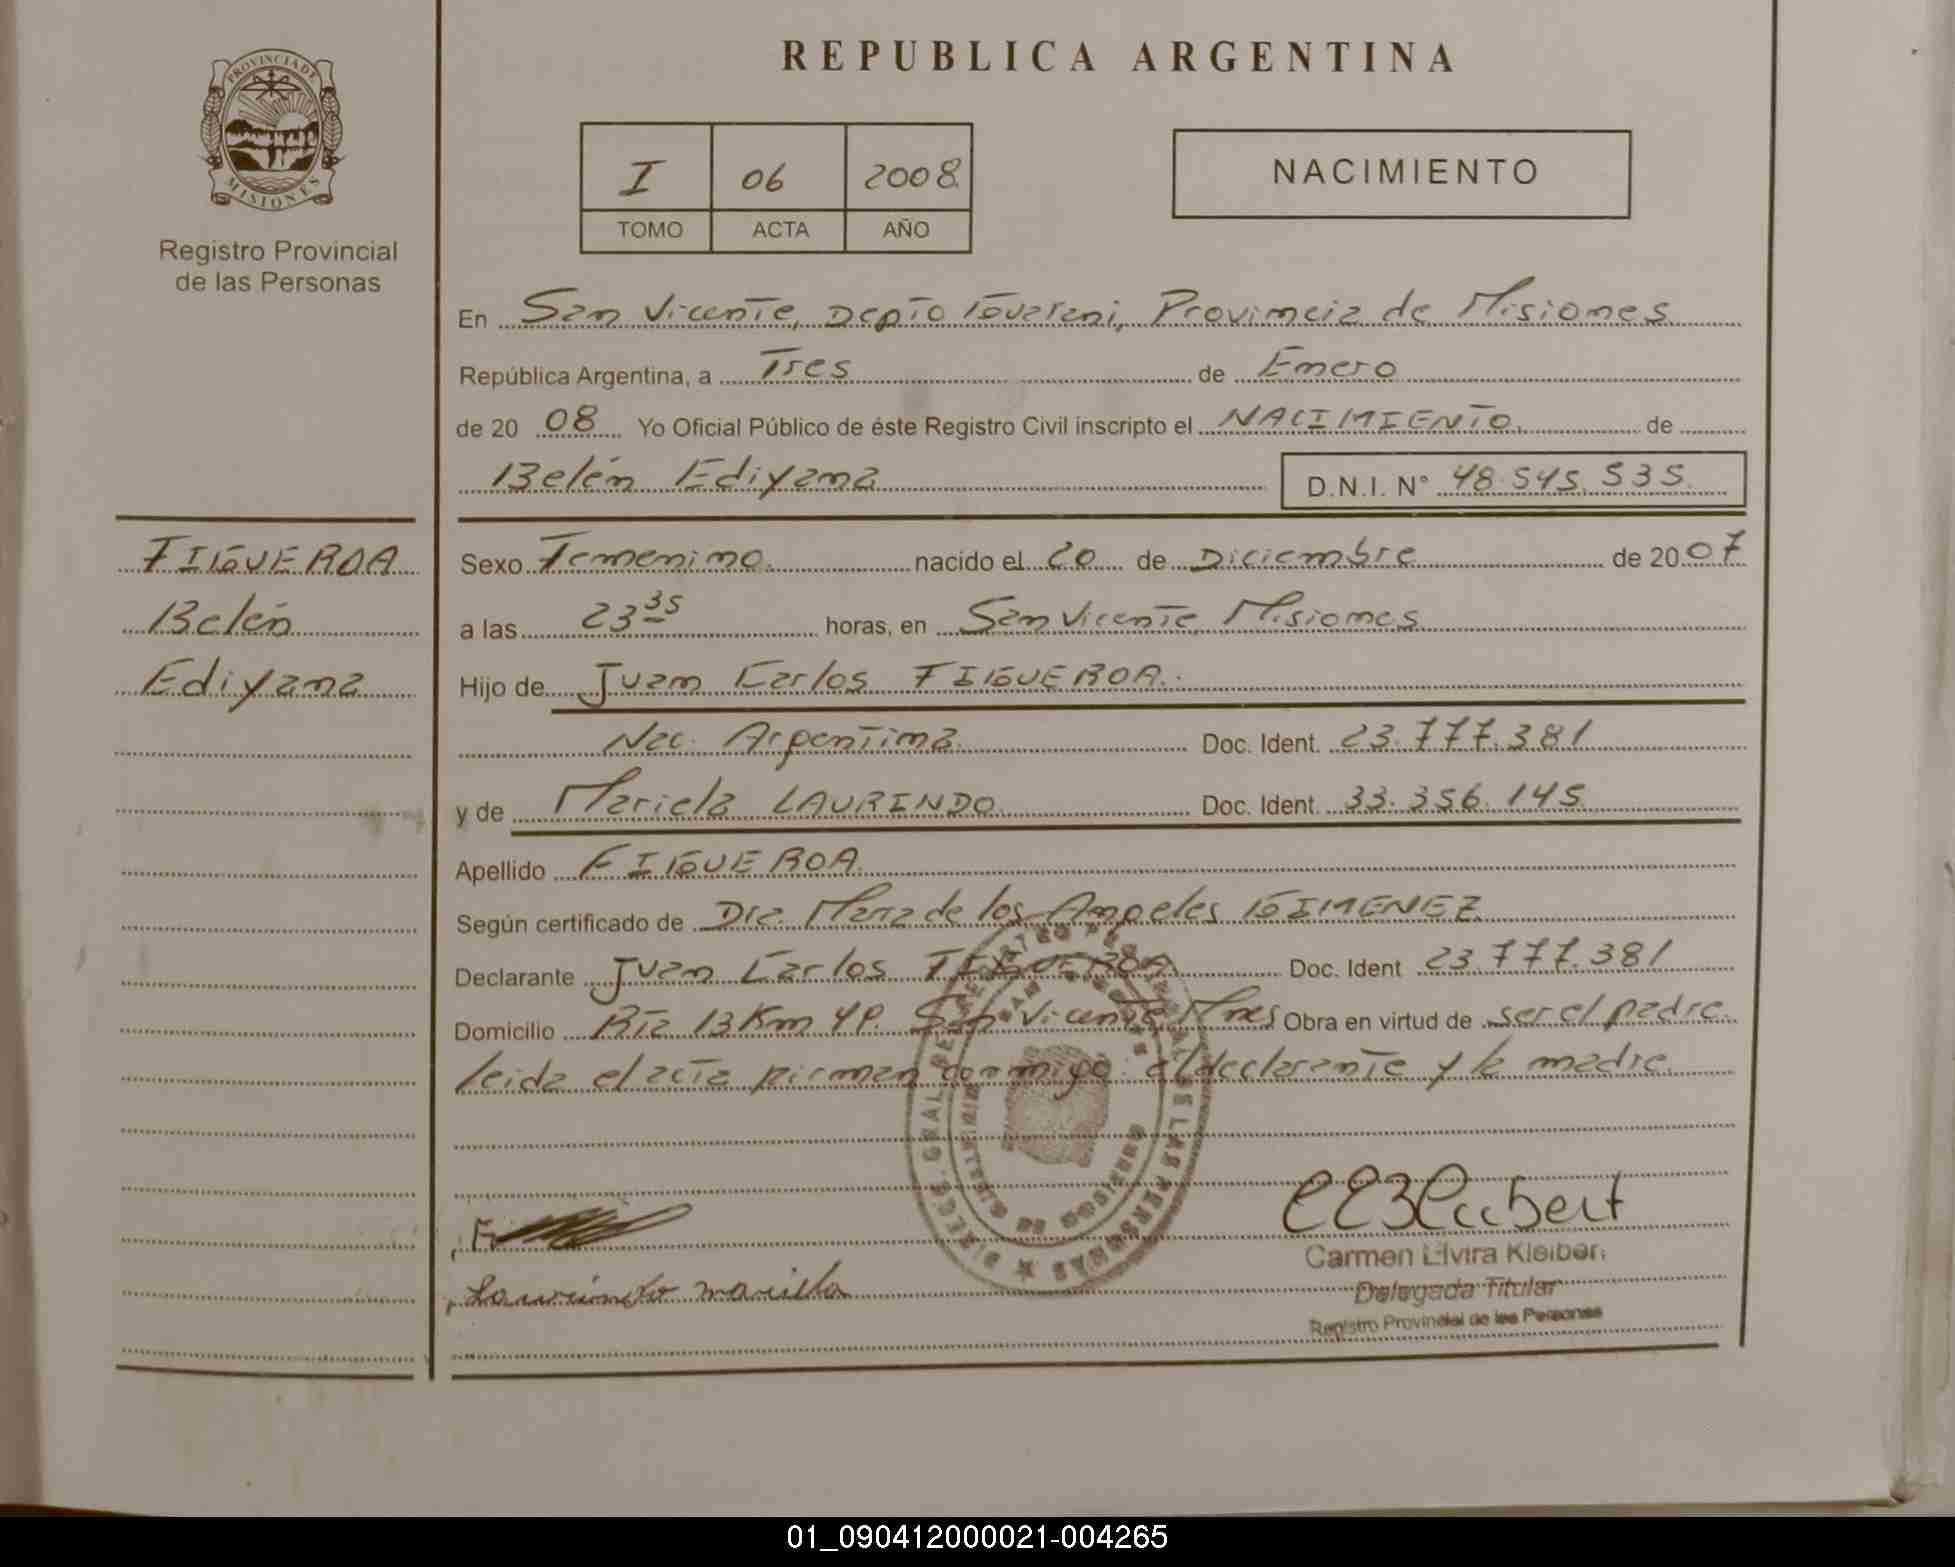 REPUBLICA ARGENTINA
PROVINCIA DE
MISIONES
Registro Provincial
de las Personas
I 06 2008
TOMO ACTA AÑO
NACIMIENTO
En San Vicente, Depto Guarani, Provincia de Misiones
República Argentina, a Tres de Enero
de 2008 Yo Oficial Público de éste Registro Civil inscripto el NACIMIENTO de
Belén Ediyana D.N.I. N° 48.545.535
FIGUEROA
Belén
Ediyana
Sexo Femenino nacido el 20 de Diciembre de 2007
a las 23 35 horas, en San Vicente Misiones
Hijo de Juan Carlos FIGUEROA
Nac. Argentina Doc. Ident. 23.777.381
y de Mariela LAURINDO Doc. Ident. 33.356.145
Apellido FIGUEROA
Según certificado de Dra. Maria de los Angeles GIMENEZ
Declarante Juan Carlos FIGUEROA Doc. Ident 23.777.381
Domicilio Rta 13 Km 4P. San Vicente Mnes Obra en virtud de ser el padre
leida el acta firman conmigo el declarante y la madre
Laurindo mariela
Carmen Elvira Kleibert
Delegada Titular
Registro Provincial de las Personas
01_090412000021-004265